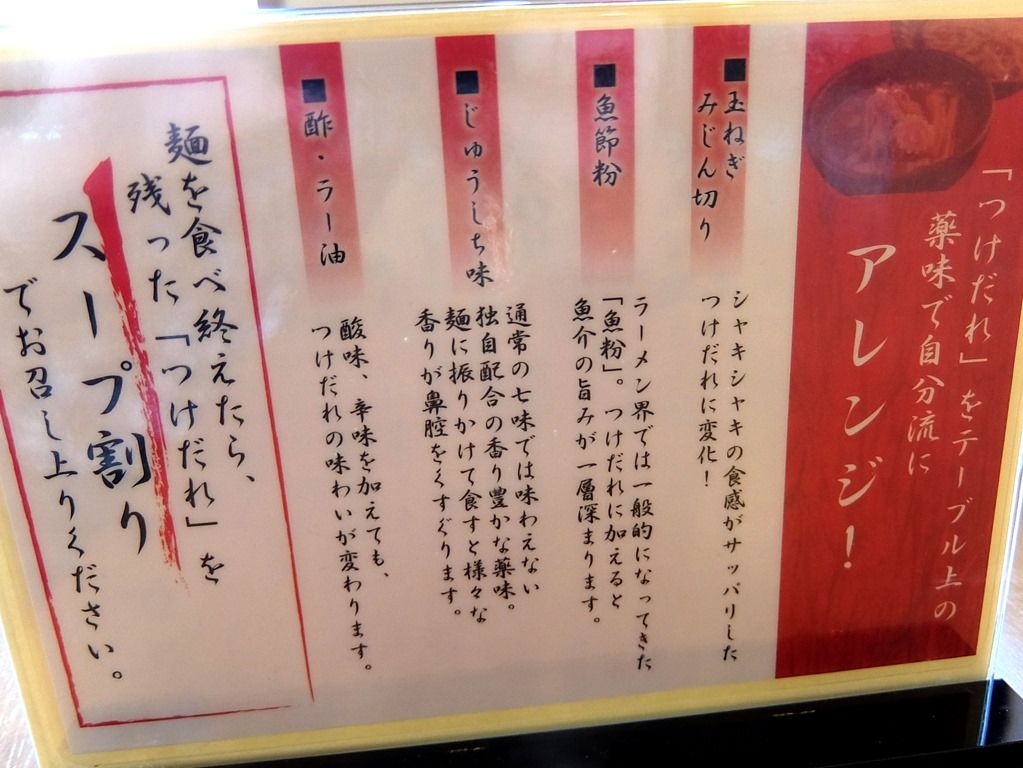 「つけだれ」をテーブル上の
薬味で自分流に
アレンジ！
■玉ねぎ
みじん切り
シャキシャキの食感がサッパリした
つけだれに変化！
■魚節粉
ラーメン界では一般的になってきた
「魚粉」。つけだれに加えると
魚介の旨みが一層深まります。
■じゅうしち味
通常の七味では味わえない
独自配合の香り豊かな薬味。
麺に振りかけて食すと様々な
香りが鼻腔をくすぐります。
■酢・ラー油
酸味、辛味を加えても、
つけだれの味わいが変わります。
麺を食べ終えたら、
残った「つけだれ」を
スープ割り
でお召し上りください。